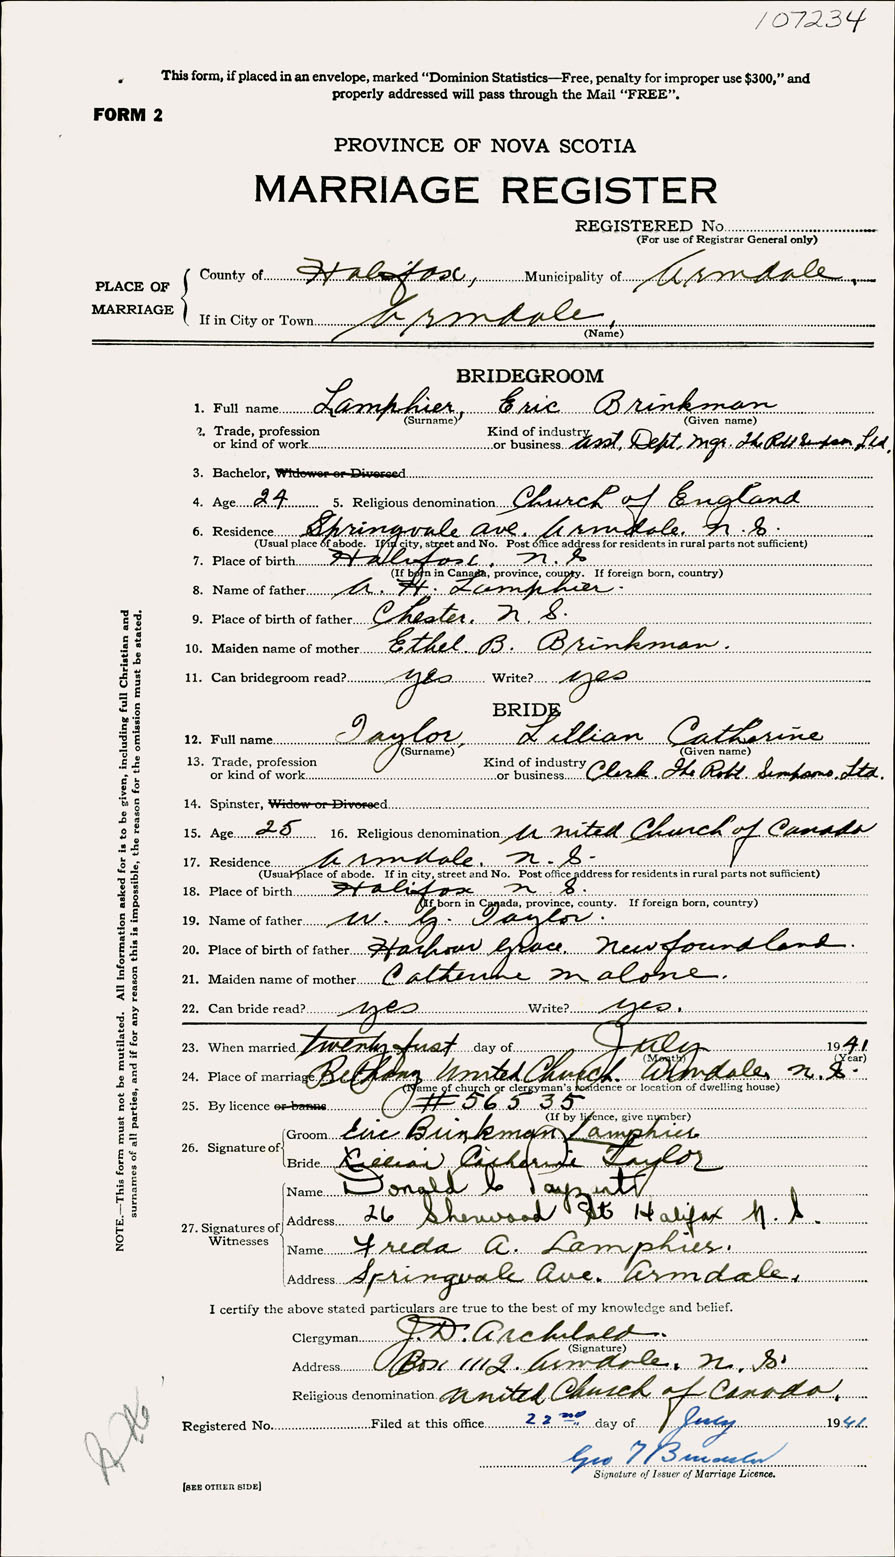 107234
This form, if placed in an envelope, marked “Dominion Statistics—Free, penalty for improper use $300,” and
properly addressed will pass through the Mail “FREE”.
FORM 2
PROVINCE OF NOVA SCOTIA
MARRIAGE REGISTER
REGISTERED No.
(For use of Registrar General only)
PLACE OF MARRIAGE
County of Halifax, Municipality of Armdale,
If in City or Town Armdale,
(Name)
BRIDEGROOM
1. Full name Lamphier, Eric Brinkman
(Surname) (Given name)
2. Trade, profession or kind of work Kind of industry or business Asst. Dept. Mgr. The Robt Simpson Ltd.
3. Bachelor, Widower or Divorced
4. Age 24 5. Religious denomination Church of England
6. Residence Springvale Ave. Armdale. N. S.
(Usual place of abode. If in city, street and No. Post office address for residents in rural parts not sufficient)
7. Place of birth Halifax, N. S
(If born in Canada, province, county. If foreign born, country)
8. Name of father A. H. Lamphier.
9. Place of birth of father Chester. N. S.
10. Maiden name of mother Ethel B. Brinkman.
11. Can bridegroom read? yes Write? yes
BRIDE
12. Full name Taylor, Lillian Catherine
(Surname) (Given name)
13. Trade, profession or kind of work Kind of industry or business Clerk. The Robt. Simpsons, Ltd.
14. Spinster, Widow or Divorced
15. Age 25 16. Religious denomination United Church of Canada
17. Residence Armdale. N. S.
(Usual place of abode. If in city, street and No. Post office address for residents in rural parts not sufficient)
18. Place of birth Halifax N S.
(If born in Canada, province, county. If foreign born, country)
19. Name of father W. G. Taylor.
20. Place of birth of father Harbour Grace. Newfoundland.
21. Maiden name of mother Catherine Malone.
22. Can bride read? yes Write? yes.
23. When married twenty first day of July 1941
(Month) (Year)
24. Place of marriage Bethany United Church. Armdale, N. S.
(Name of church or clergyman's residence or location of dwelling house)
25. By licence or banns #56535
(If by licence, give number)
26. Signature of
Groom Eric Brinkman Lamphier
Bride Lillian Catherine Taylor
27. Signatures of Witnesses
Name Donald C
Address 26 Sherwood St Halifax N. S.
Name Freda A. Lamphier.
Address Springvale Ave. Armdale.
I certify the above stated particulars are true to the best of my knowledge and belief.
Clergyman J. D. Archibald.
(Signature)
Address Box 1112. Armdale. N. S.
Religious denomination United Church of Canada.
Registered No. Filed at this office 22nd day of July 1941
Geo T
Signature of Issuer of Marriage Licence.
[SEE OTHER SIDE]
NOTE.—This form must not be mutilated. All information asked for is to be given, including full Christian and
surnames of all parties, and if for any reason this is impossible, the reason for the omission must be stated.